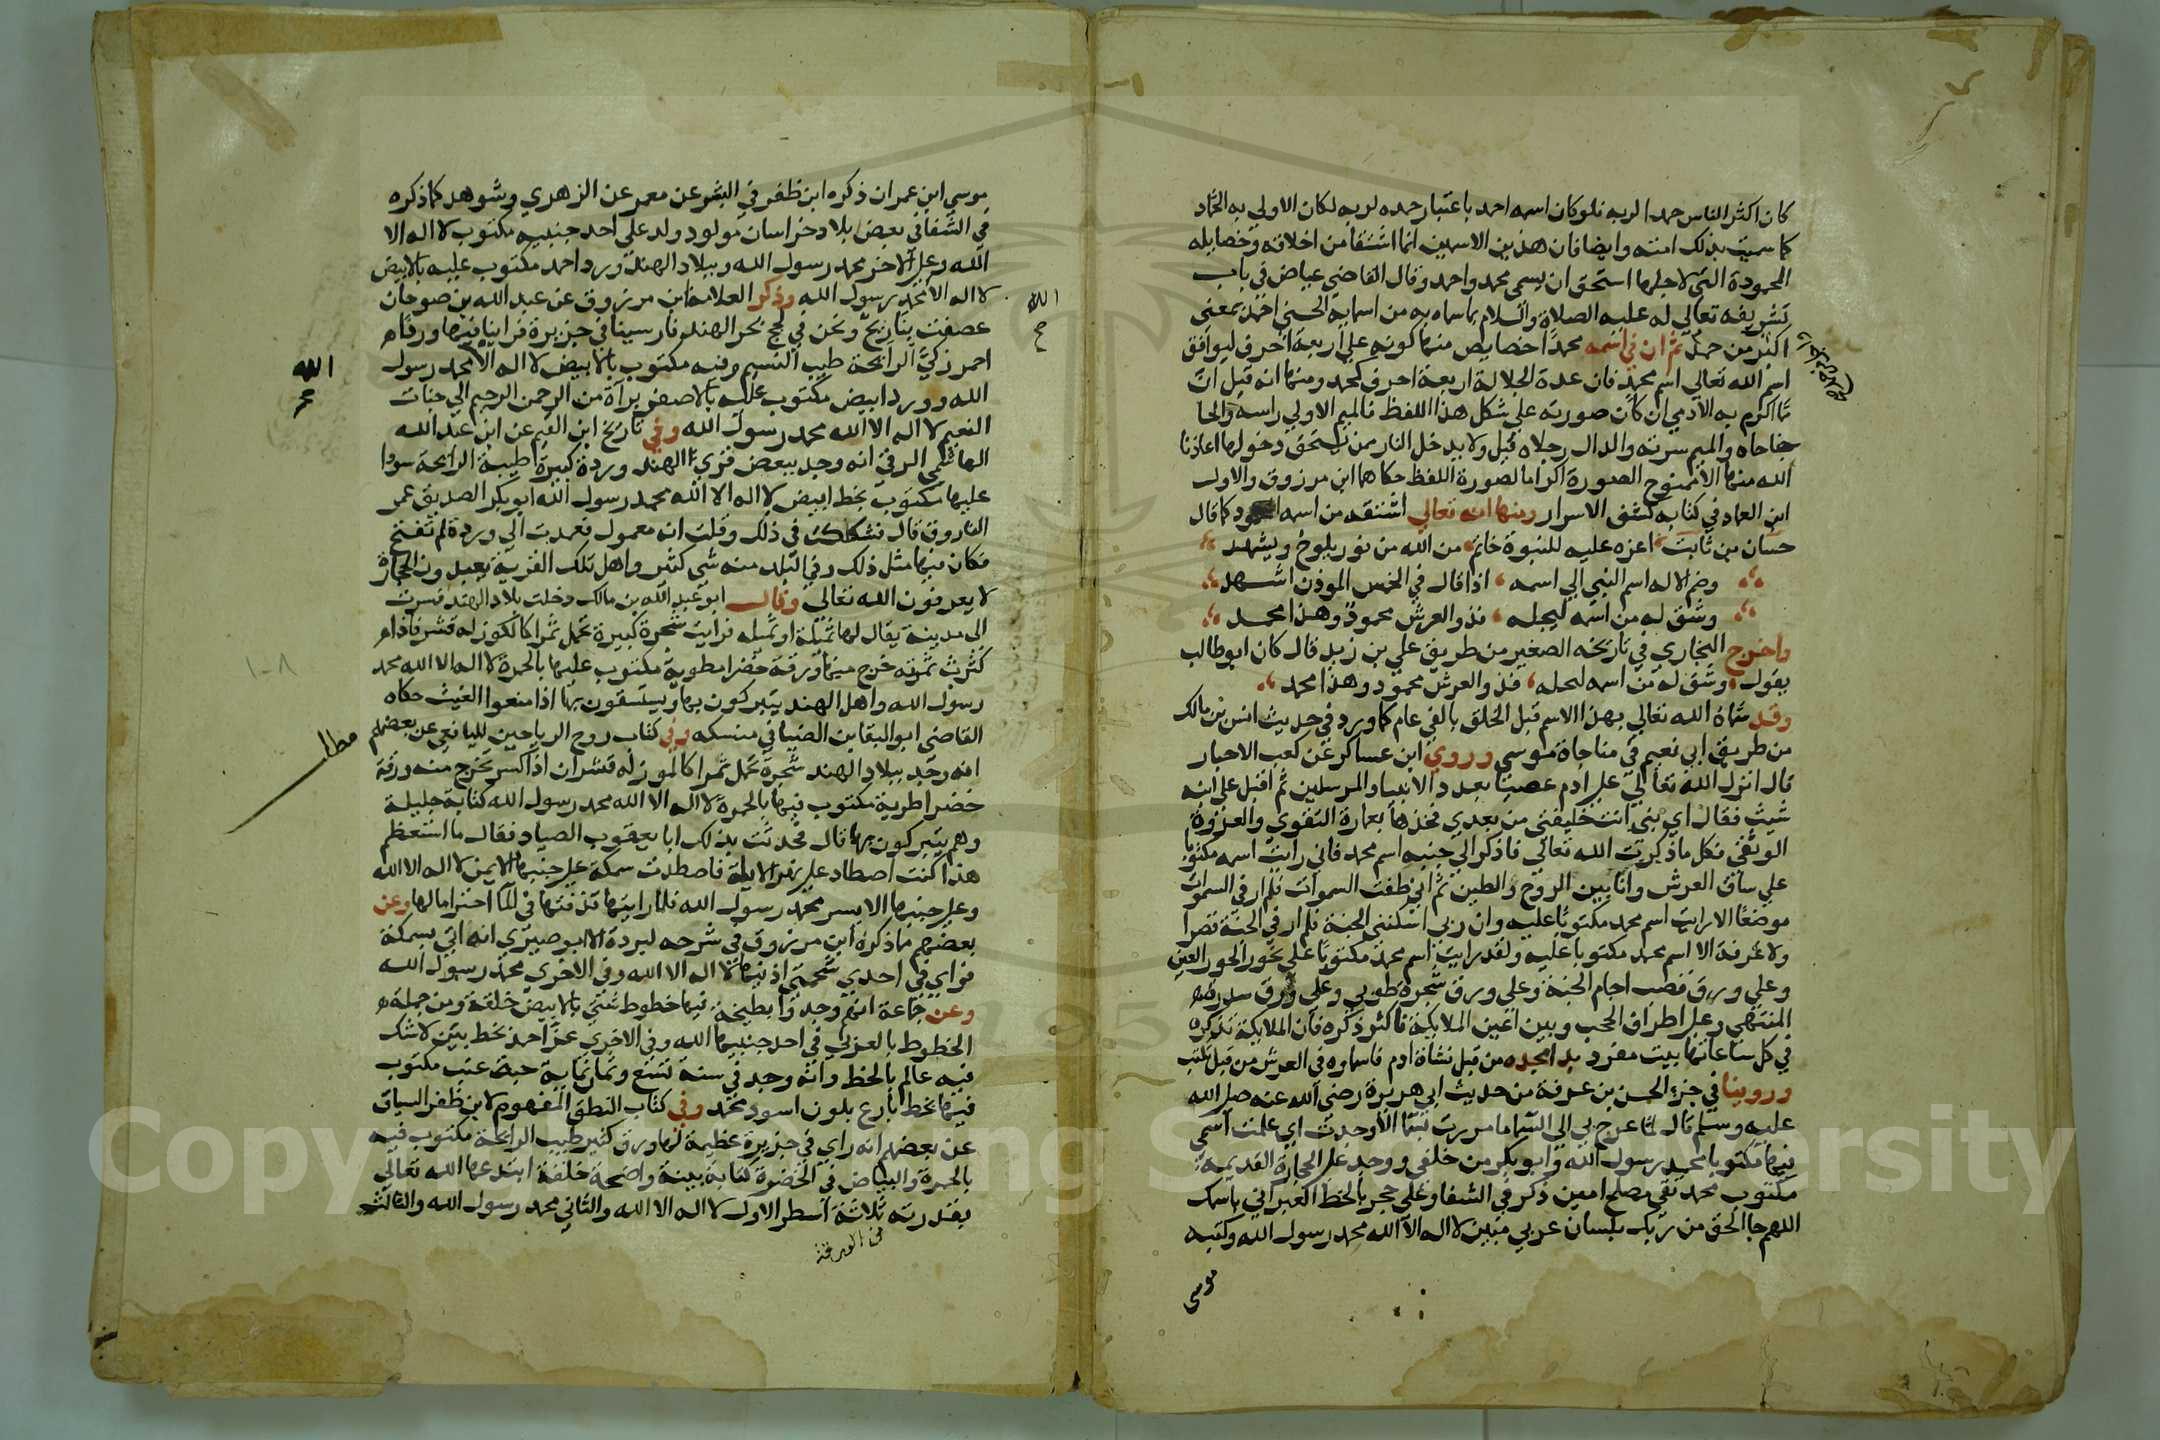 كان اكثر الناس حمدا لربه فلو كان اسمه احمد باعتبار حمده لربه لكان الاولي به الحماد
كما سميت بذلك امته وايضا فان هذين الاسمين انما اشتقا من اخلاقه وخصايله
المحمودة التي لاجلها استحق ان يسمي محمد واحمد وقال القاضي عياض في باب
تشريفه تعالي له عليه الصلاة والسلام بما سماه به من اسمايه الحسني احمد بمعني
اكثر من حمد ثم ان في اسمه محمد خصايص منها كونه علي اربعة احرف ليوافق
اسم الله تعالي اسم محمد فان عدة الجلالة اربعة احرف كمحمد ومنها انه قيل ان
مما اكرم به الادمي ان كان صورته علي شكل هذا اللفظ فالميم الاولي راسه والحا
جناحاه والميم سرته والدال رجلاه قيل ولا يدخل النار من يستحق دخولها اعاذنا
الله منها الا ممسوخ الصورة اكراما لصورة اللفظ حكاهما ابن مرزوق والاول
ابن العماد في كتابه كشف الاسرار ومنها انه تعالي اشتقه من اسمه المحمود كما قال
حسان بن ثابت اغر عليه للنبوة خاتم من الله من نور يلوح ويشهد
وضم الاله اسم النبي الي اسمه اذا قال في الخمس الموذن اشهد
وشق له من اسمه ليجله فذو العرش محمود وهذا محمد
واخرج البخاري في تاريخه الصغير من طريق علي بن زيد قال كان ابو طالب
يقول وشق له من اسمه ليجله فذو العرش محمود وهذا محمد
وقد سماه الله تعالي بهذا الاسم قبل الخلق بالفي عام كما ورد في حديث انس بن مالك
من طريق ابي نعيم في مناجاة موسي وروي ابن عساكر عن كعب الاحبار
قال انزل الله تعالي علي ادم عصيا بعدد الانبيا والمرسلين ثم اقبل علي ابنه
شيث فقال اي بني انت خليفتي من بعدي فخذها بعمارة التقوي والعروة
الوثقي فكل ما ذكرت الله تعالي فاذكر الي جنبه اسم محمد فاني رايت اسمه مكتوبا
علي ساق العرش وانا بين الروح والطين ثم اني طفت السموات فلم ار في السموات
موضعا الا رايت اسم محمد مكتوبا عليه وان ربي اسكنني الجنة فلم ار في الجنة قصرا
ولا غرفة الا اسم محمد مكتوبا عليه ولقد رايت اسم محمد مكتوبا علي نحور الحور العين
وعلي ورق قصب اجام الجنة وعلي ورق شجرة طوبي وعلي ورق سدرة
المنتهي وعلي اطراف الحجب وبين اعين الملايكة فاكثر ذكره فان الملايكة تذكره
في كل ساعاتها بيت مفرد بدا مجده من قبل نشاة ادم فاسماوه في العرش من قبل تكتب
وروينا في جزء الحسن بن عرفة من حديث ابي هريرة رضي الله عنه صلي الله
عليه وسلم قال لما عرج بي الي السما ما مررت بسما الا وجدت اي علمت اسمي
فيها مكتوبا محمد رسول الله وابو بكر من خلفي ووجد علي الحجارة القديمة
مكتوب محمد تقي مصلح امين ذكر في الشفا وعلي حجر بالخط العبراني باسمك
اللهم جا الحق من ربك بلسان عربي مبين لا اله الا الله محمد رسول الله وكتبه
موسي
موسي ابن عمران ذكره ابن ظفر في البشر عن معمر عن الزهري وشوهد كما ذكره
في الشفا في بعض بلاد خراسان مولود ولد علي احد جنبيه مكتوب لا اله الا
الله وعلي الاخر محمد رسول الله وببلاد الهند ورد احمد مكتوب عليه بالابيض
لا اله الا محمد رسول الله وذكر العلامة ابن مرزوق عن عبد الله بن صوحان
الله
عصفت بنا ريح ونحن في لجج بحر الهند فارسينا في جزيرة فراينا فيها وردا
احمر زكي الرايحة طيب النسيم وفيه مكتوب بالابيض لا اله الا محمد رسول
الله
الله وورد ابيض مكتوب عليه بالاصفر براة من الرحمن الرحيم الي جنات
النعيم لا اله الا الله محمد رسول الله وفي تاريخ ابن العديم عن ابن عبد الله
الهاشمي الرقي انه وجد ببعض قري الهند وردة كبيرة طيبة الرايحة سودا
عليها مكتوب بخط ابيض لا اله الا الله محمد رسول الله ابو بكر الصديق عمر
الفاروق قال فشككت في ذلك وقلت انه معمول فعمدت الي وردة لم تفتح
فكان فيها مثل ذلك وفي البلد منه شي كثير واهل تلك القرية يعبدون الحجارة
لا يعرفون الله تعالي وقال ابو عبد الله بن مالك دخلت بلاد الهند فسرت
الي مدينة يقال لها نميلة او ثميله فرايت شجرة كبيرة تحمل ثمرا كاللوز له قشر فاذا
كسرت ثمرته خرج منها ورقة خضرا مطوية مكتوب عليها بالحمرة لا اله الا الله محمد
رسول الله واهل الهند يتبركون بها ويستسقون بها اذا منعوا الغيث حكاه
القاضي ابو البقا بن الضيا في منسكه وفي كتاب روح الرياحين لليافعي عن بعضهم
مطلب
انه وجد ببلاد الهند شجرة تحمل ثمرا كاللوز له قشران اذا كسر يخرج منه ورقة
خضرا طرية مكتوب فيها بالحمرة لا اله الا الله محمد رسول الله كتابة جليلة
وهم يتبركون بها قال فحدثت بذلك ابا يعقوب الصياد فقال ما استعظم
هذا كنت اصطاد علي نهر الابلة فاصطدت سمكة علي جنبها الايمن لا اله الا الله
وعلي جنبها الايسر محمد رسول الله فلما رايتها قذفتها في الما احتراما لها وعن
بعضهم ما ذكره ابن مرزوق في شرحه لبردة الابوصيري انه اتي بسمكة
فراي في احدي شحمتي اذنيها لا اله الا الله وفي الاخري محمد رسول الله
وعن جماعة انهم وجدوا بطيخة فيها خطوط شتي بالابيض خلقة ومن جملة
الخطوط بالعربي في احد جنبيها الله وفي الاخري عز احمد بخط بين لا شك
فيه عالم بالخط وانه وجد في سنة تسع وثمانمايه حبة عنب مكتوب
فيها بخط بارع بلون اسود محمد وفي كتاب النطق المفهوم لابن ظفر السياف
عن بعضهم انه راي في جزيرة عظيمة لها ورق كثير طيب الرايحة مكتوب فيه
بالحمرة والبياض في الخضرة كتابة بينة واضحة خلقة ابتدعها الله تعالي
بقدرته ثلاثة اسطر الاول لا اله الا الله والثاني محمد رسول الله والثالث
١٠٨
Copy
ng S
ersity